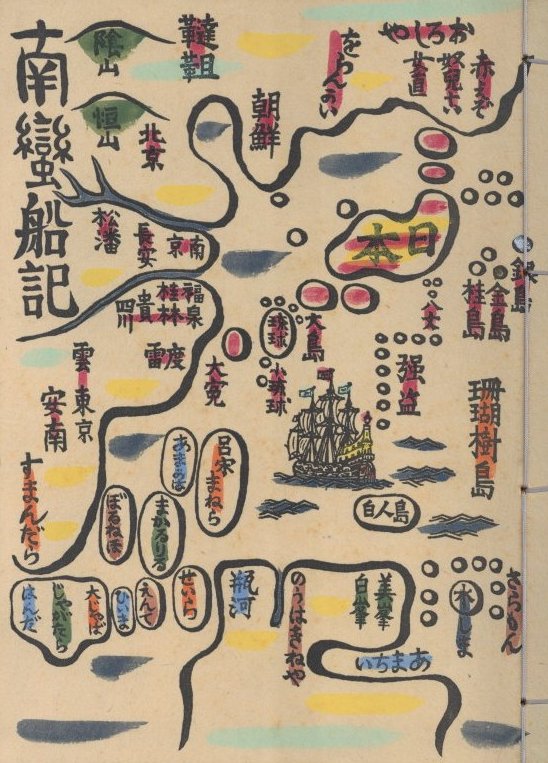 南蠻船記
陰山
恒山
韃靼
北京
朝鮮
をらんかい
おろしや
奴児
赤
日本
松潘
長安
南京
福泉
桂林
貴
四川
雲
雷
度
東京
安南
大寃
琉球
小琉球
大島
八丈
強盗
銀島
金島
桂島
珊瑚樹島
白人島
すまんだら
呂宋
まねら
あまかは
まかざりる
ぼるねほ
はんだ
じやがたら
大じやば
ひいま
えんで
せいらん
瓶河
のうはきねや
美峯
白峯
あまちい
水しま
さらもん